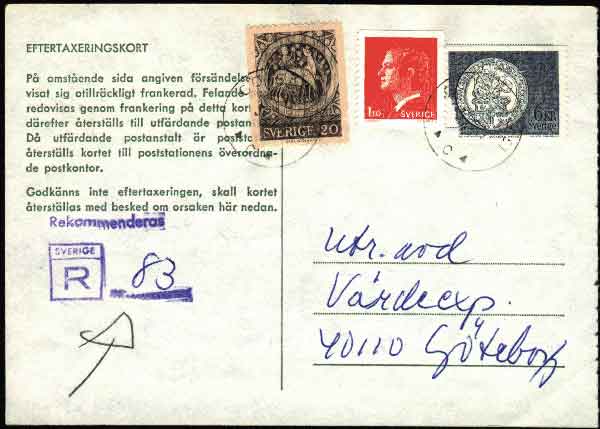 EFTERTAXERINGSKORT
På omstående sida angiven försändelse
visat sig otillräckligt frankerad. Felande
redovisas genom frankering på detta kort
därefter återställs till utfärdande postan
Då utfärdande postanstalt är postst
återställs kortet till poststationens överordna-
de postkontor.
Godkänns inte eftertaxeringen, skall kortet
återställas med besked om orsaken här nedan.
Rekommenderas
SVERIGE
R
83
SVERIGE 20
1.10 SVERIGE
6 KR
Sverige
Utr. avd
Värdeexp.
40110 Göteborg